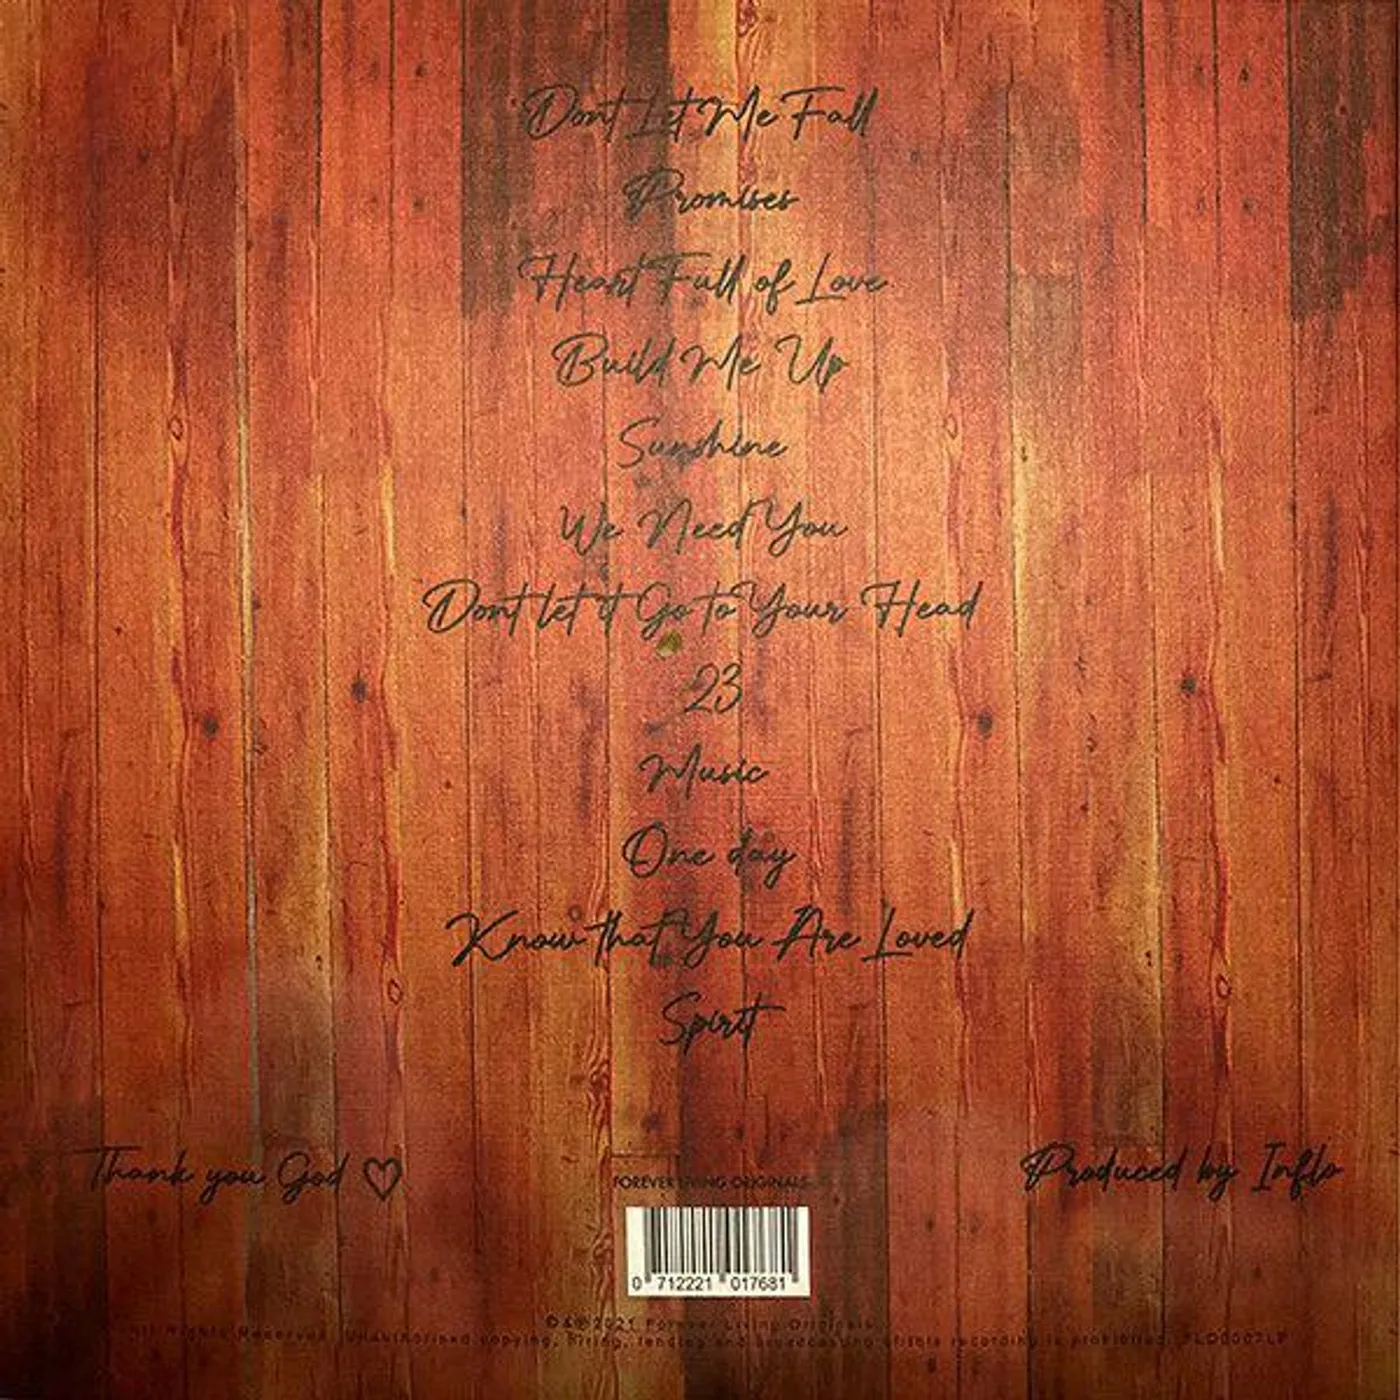 Dont Let Me Fall
Promises
Heart Full of Love
Build Me Up
Sunshine
We Need You
Dont let it Go to Your Head
23
Music
One day
Know that You Are Loved
Spirit
Thank you God ♡
Produced by Inflo
FOREVER LIVING ORIGINALS
0 712221 017681
©&℗ 2021 Forever Living Originals
All Rights Reserved. Unauthorised copying, hiring, lending and broadcasting of this recording is prohibited.